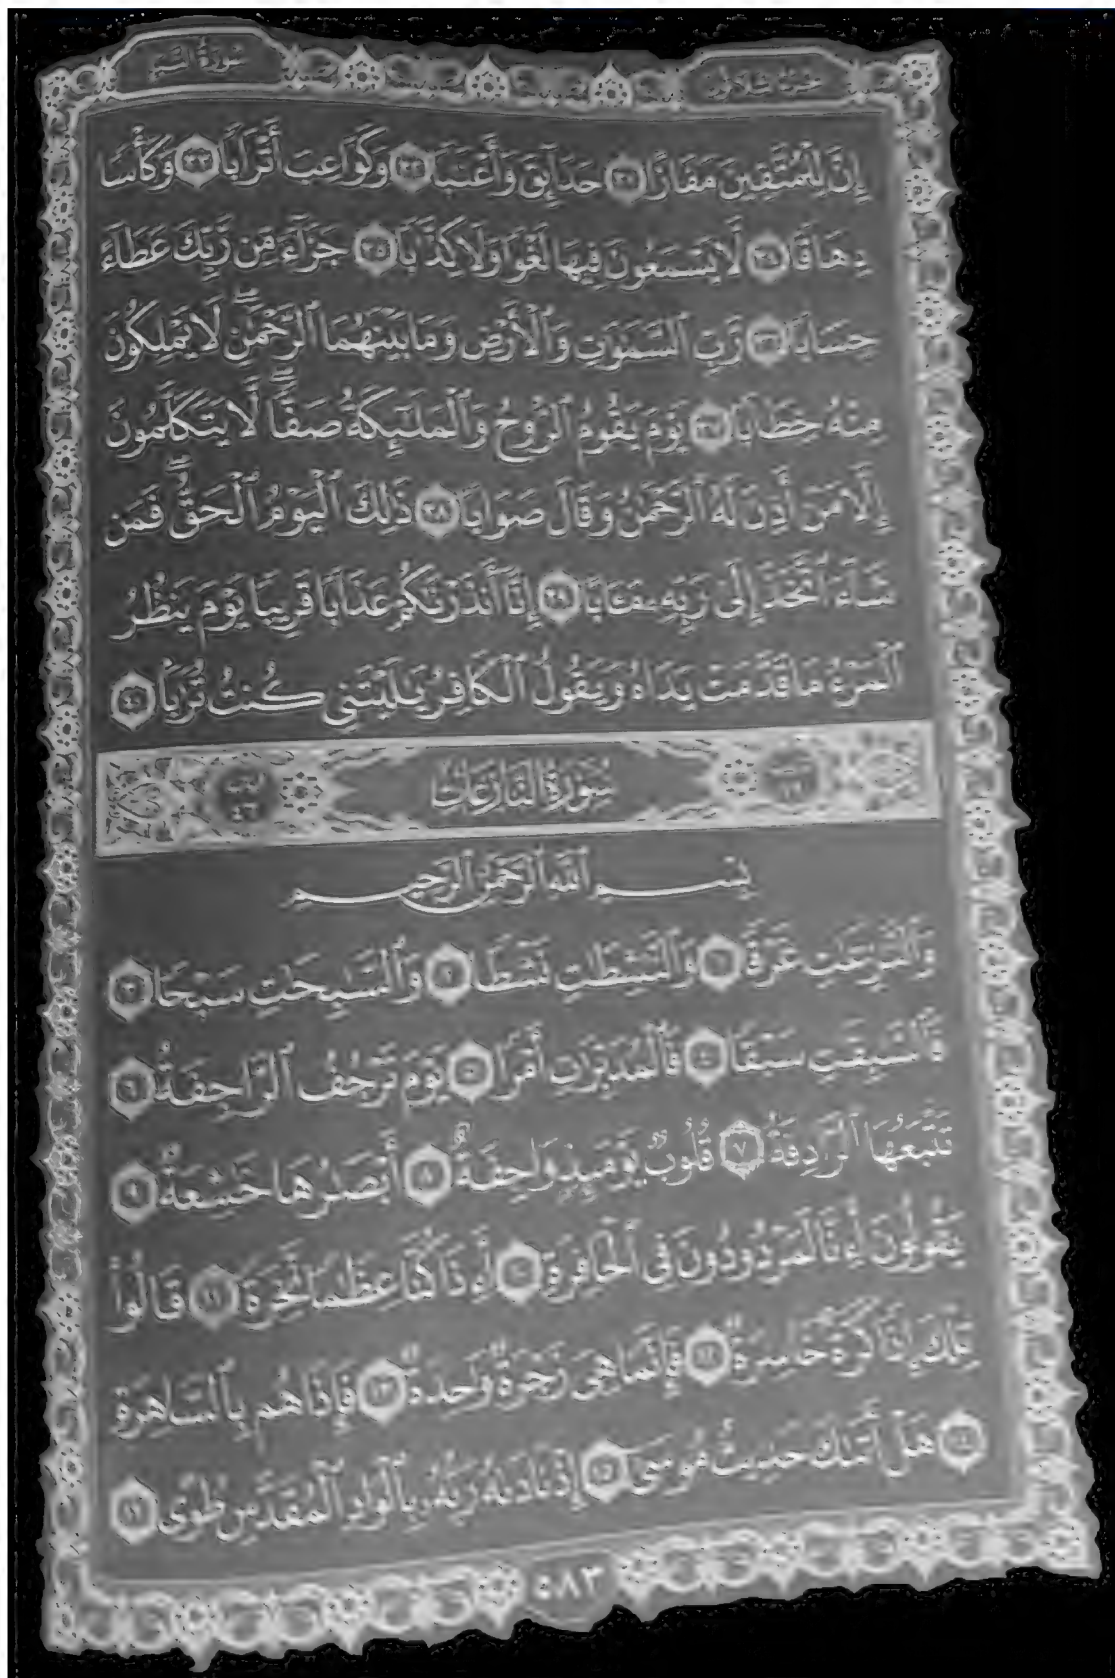 سُورَةُ النَّبَإِ جُزْءُ ثَلَاثُونَ
إِنَّ لِلْمُتَّقِينَ مَفَازًا ٣١ حَدَآئِقَ وَأَعْنَٰبًا ٣٢ وَكَوَاعِبَ أَتْرَابًا ٣٣ وَكَأْسًا
دِهَاقًا ٣٤ لَّا يَسْمَعُونَ فِيهَا لَغْوًا وَلَا كِذَّٰبًا ٣٥ جَزَآءً مِّن رَّبِّكَ عَطَآءً
حِسَابًا ٣٦ رَّبِّ ٱلسَّمَٰوَٰتِ وَٱلْأَرْضِ وَمَا بَيْنَهُمَا ٱلرَّحْمَٰنِۖ لَا يَمْلِكُونَ
مِنْهُ خِطَابًا ٣٧ يَوْمَ يَقُومُ ٱلرُّوحُ وَٱلْمَلَٰٓئِكَةُ صَفًّاۖ لَّا يَتَكَلَّمُونَ
إِلَّا مَنْ أَذِنَ لَهُ ٱلرَّحْمَٰنُ وَقَالَ صَوَابًا ٣٨ ذَٰلِكَ ٱلْيَوْمُ ٱلْحَقُّۖ فَمَن
شَآءَ ٱتَّخَذَ إِلَىٰ رَبِّهِۦ مَـَٔابًا ٣٩ إِنَّآ أَنذَرْنَٰكُمْ عَذَابًا قَرِيبًا يَوْمَ يَنظُرُ
ٱلْمَرْءُ مَا قَدَّمَتْ يَدَاهُ وَيَقُولُ ٱلْكَافِرُ يَٰلَيْتَنِى كُنتُ تُرَٰبًۢا ٤٠
سُورَةُ النَّازِعَاتِ ٤٦
بِسْمِ ٱللَّهِ ٱلرَّحْمَٰنِ ٱلرَّحِيمِ
وَٱلنَّٰزِعَٰتِ غَرْقًا ١ وَٱلنَّٰشِطَٰتِ نَشْطًا ٢ وَٱلسَّٰبِحَٰتِ سَبْحًا ٣
فَٱلسَّٰبِقَٰتِ سَبْقًا ٤ فَٱلْمُدَبِّرَٰتِ أَمْرًا ٥ يَوْمَ تَرْجُفُ ٱلرَّاجِفَةُ ٦
تَتْبَعُهَا ٱلرَّادِفَةُ ٧ قُلُوبٌ يَوْمَئِذٍ وَاجِفَةٌ ٨ أَبْصَٰرُهَا خَٰشِعَةٌ ٩
يَقُولُونَ أَءِنَّا لَمَرْدُودُونَ فِى ٱلْحَافِرَةِ ١٠ أَءِذَا كُنَّا عِظَٰمًا نَّخِرَةً ١١ قَالُوا۟
تِلْكَ إِذًا كَرَّةٌ خَاسِرَةٌ ١٢ فَإِنَّمَا هِىَ زَجْرَةٌ وَٰحِدَةٌ ١٣ فَإِذَا هُم بِٱلسَّاهِرَةِ
١٤ هَلْ أَتَىٰكَ حَدِيثُ مُوسَىٰٓ ١٥ إِذْ نَادَىٰهُ رَبُّهُۥ بِٱلْوَادِ ٱلْمُقَدَّسِ طُوًى ١٦
٥٨٣